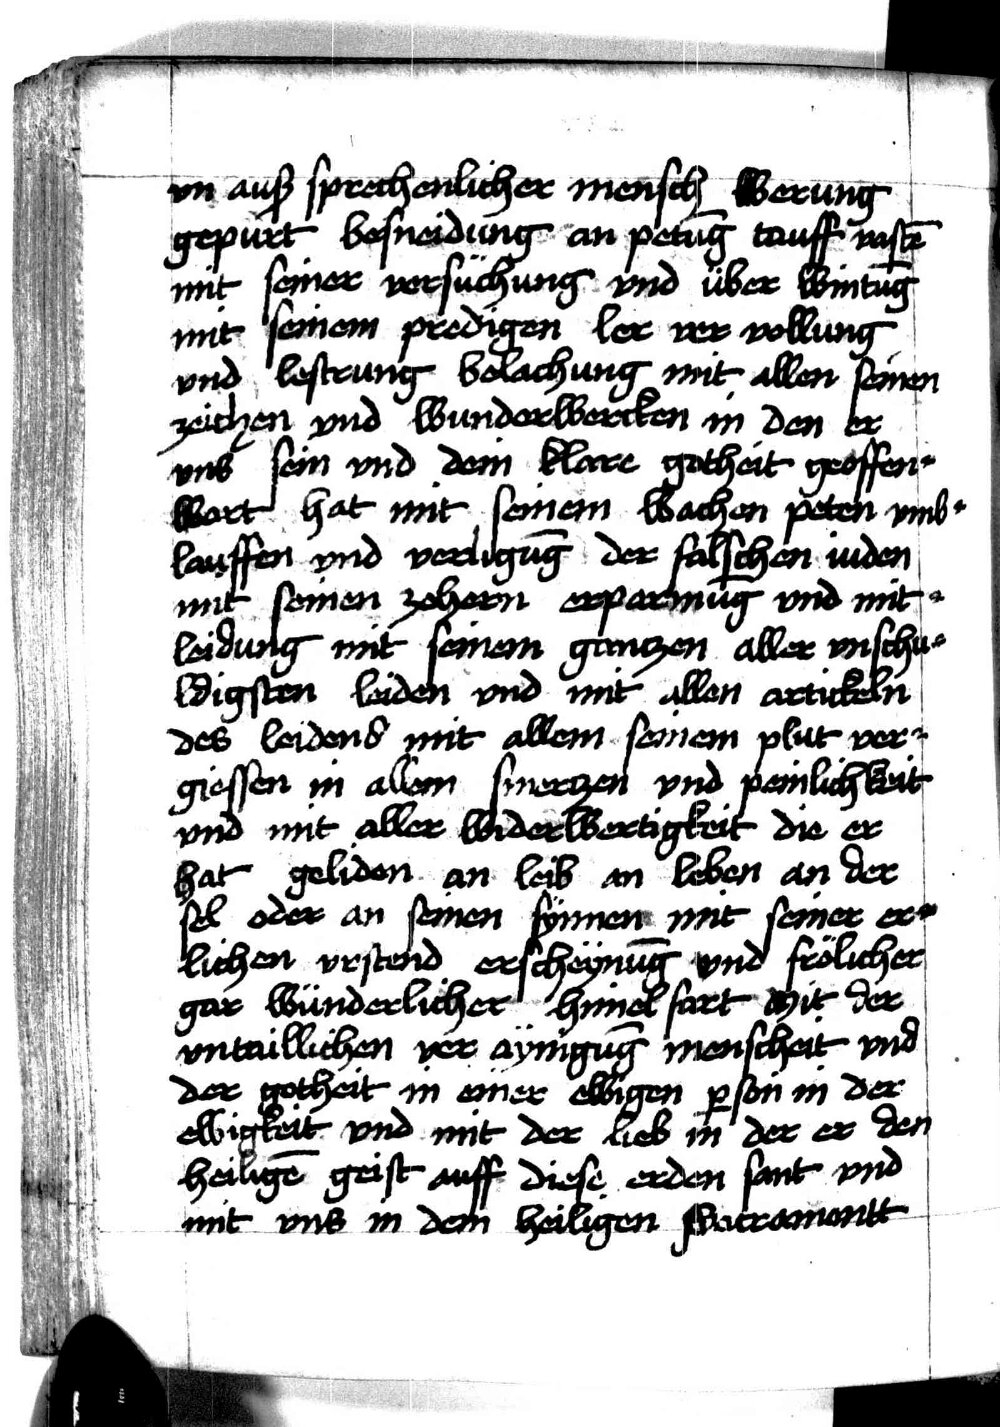 vn auß sprechenlicher mensch werung
gepurt besneidung an petūg tauff vastē
mit seiner versüchung vnd über wintūg
mit seinem predigen ler ver vollung
vnd lestrung belachung mit allen seinen
zeichen vnd wunderwercken in den er
vns sein vnd dein klare gotheit geoffen-
wart hat mit seinem wachen peten vmb-
lauffen vnd der falschen iuden
mit seinen zehern erparmūg vnd mit-
leidung mit seinem gantzen aller vnschu-
ldigsten leiden vnd mit allen artickeln
des leidens mit allem seinem plut ver-
giessen in allem smertzen vnd peinlichkeit
vnd mit aller widerwertigkeit die er
hat geliden an leib an leben an der
sel oder an seinen synnen mit seiner er-
lichen vrstend erscheynūg vnd frölicher
gar wünderlicher himel fart Mit der
vntaillichen ver aynigūg menscheit vnd
der gotheit in einer ewigen pson in der
ewigkeit vnd mit der lieb in der er den
heiligē geist auff diese erden sant vnd
mit vns in dem heiligen